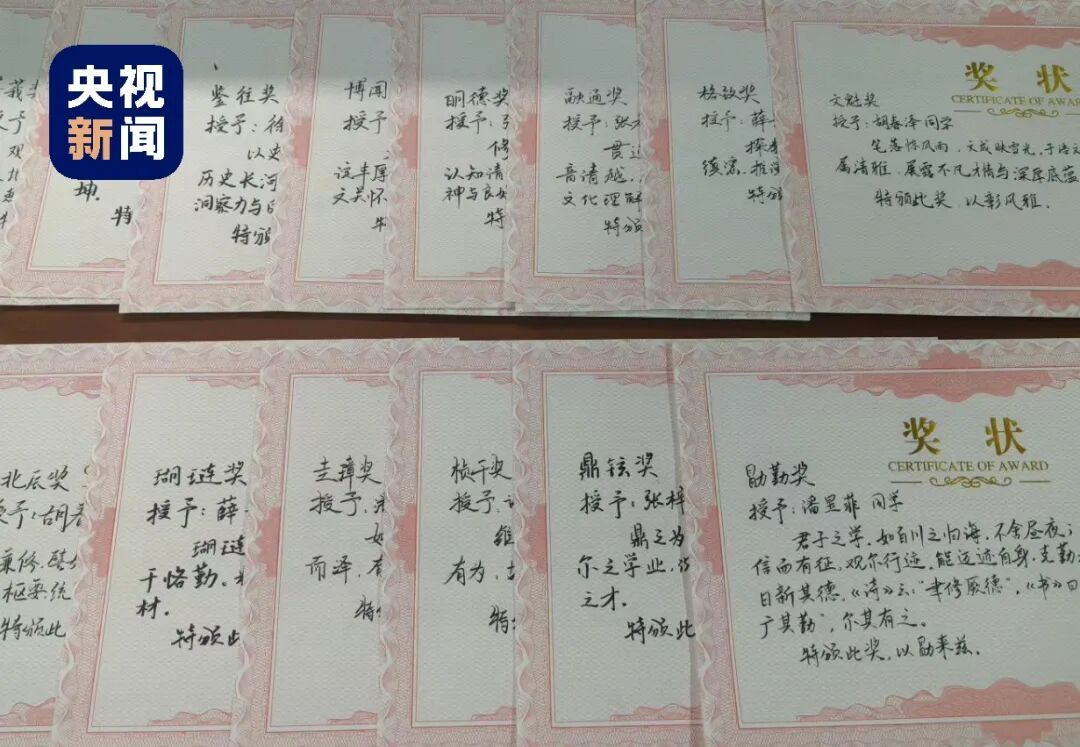 央视
新闻
坤.
特
鉴往奖
授予:徐
以史
历史长河
洞察力与
特颁
博闻
授予
文关怀
明德奖
授予:
修
认知请
神与良好
特
融通奖
授予:张
贯通
音请越
文化理解
特颁
格致奖
授予:薛
探
缜密.推
特颁
奖 状
CERTIFICATE OF AWARD
文魁奖
授予:胡春泽同学
笔落惊风雨,文成映雪光,于语文
属清雅,屡露不凡才情与深厚底蕴
特颁此奖,以彰风雅.
北辰奖
授予:胡春
兼修,
枢要统
特颁此
瑚琏奖
授予:薛
瑚琏
干恪勤.
材.
特颁此
圭璋奖
授予,
如
而泽,
特
桢干奖
授予,
维
有为,
特
鼎铉奖
授予:张梓
鼎之为
尔之学业,
之才.
特颁此
奖 状
CERTIFICATE OF AWARD
勖勤奖
授予:潘昱菲 同学
君子之学,如百川之归海,不舍昼夜;
信而有征,观尔行迹,能迈迹自身,克勤
日新其德,《诗》云:"聿修厥德",《书》曰
广其勤",尔其有之.
特颁此奖,以勖来兹.